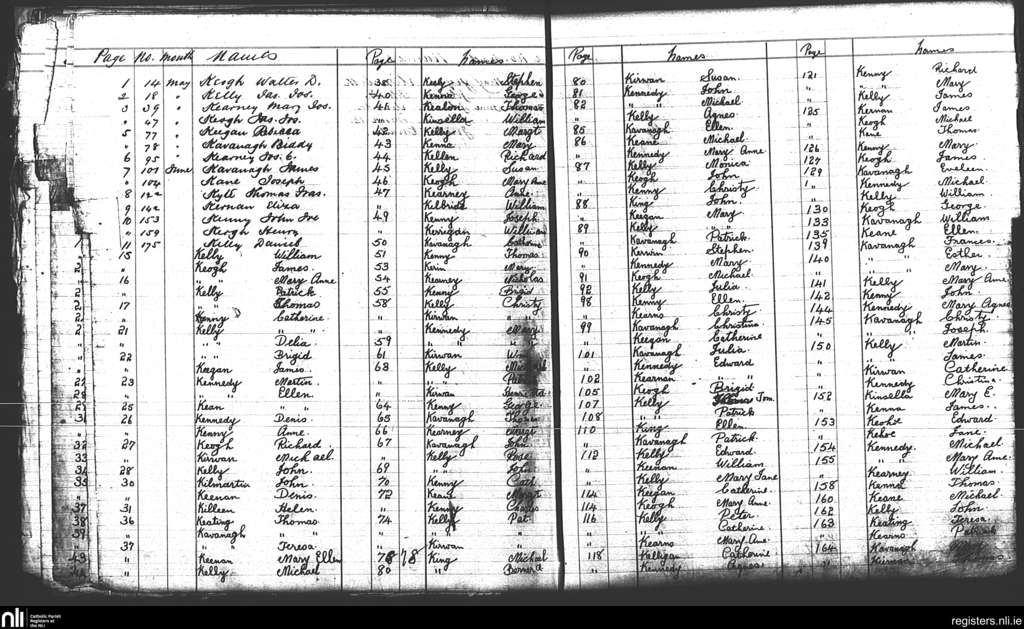 Page No. Month Names
1 14 May Keogh Walter D.
2 18 " Kelly Jas. Jos.
3 39 " Kearney Mary Jos.
" 47 " Keogh Jas. Jos.
5 77 " Keegan Rebecca
" 78 " Kavanagh Biddy
6 95 " Kearney Jos. C.
7 101 June Kavanagh James
" 104 " Kane Joseph
8 122 " Kytt Thomas Fras.
9 142 " Kiernan Eliza
10 153 " Kenny John Jos
" 159 " Keogh Henry
11 175 " Kelly Daniel
15 Kelly William
" Keogh James
16 " " Mary Anne
" Kelly Patrick
17 " " Thomas
" Kenny Catherine
21 Kelly " "
" " " Delia
22 " " Brigid
" Keegan James
23 Kennedy Martin
" " " Ellen
25 Kean " "
26 Kennedy Denis
" Kenny Anne
27 Keogh Richard
" Kirwan Michael
28 Kelly John
30 Kilmartin John
" Keenan Denis
31 Killeen Helen
36 Keating Thomas
" Kavanagh " "
37 " " Teresa
" Keenan Mary Ellen
" Kelly Michael
Page Names
38 Keely Stephen
40 Kenna George
41 Kealon Thomas
" Kinsella William
42 Kelly Margt
43 Kenna Mary
44 Kellen Richard
45 Kelly Susan
46 Keogh Mary Anne
47 Kearney
" Kelbride William
49 Kenny Joseph
" Kerrigan William
50 Kavanagh
51 Kenny Thomas
53 Kerin Mary
54 Kearney Nicholas
55 Kenny Brigid
58 Kelly Christy
" Kirwan " "
" Kennedy Mary
59 " "
61 Kirwan
63 Kelly
" " "
" Kirwan
64 Kenny George
65 Kavanagh
66 Kearney Margt
67 Kavanagh John
" Kelly Rose
69 " " John
70 Kenny Cath
72 Kean Margt
" Kenny Charles
74 Kelly Pat
" " "
" Kirwan
78 78 King Michael
80 "
Page Names
80 Kirwan Susan
81 Kennedy John
82 " " Michael
" Kelly Agnes
85 Kavanagh Ellen
86 Keane Michael
" Kennedy Mary Anne
87 Kelly Monica
" Keogh John
" Kenny Christy
88 King John
" Keegan Mary
89 Kelly "
" Kavanagh Patrick
90 Kerwin Stephen
" Kennedy Mary
91 Keogh Michael
92 Kelly Julia
98 Kenny Ellen
" Kearns Christy
99 Kavanagh Christina
" Keegan Catherine
101 Kavanagh Julia
" Kennedy Edward
102 Kearnan " "
105 Keogh Brigid
107 Kelly Thomas Jom.
108 " " Patrick
110 King Ellen
" Kavanagh Patrick
112 Kelly Edward
" Keenan William
" Kelly Mary Jane
114 Keegan Catherine
114 Keogh Mary Anne
116 Kelly Peter
" " Catherine
" Kearns Mary Anne
118 Kelligan Catherine
" Kennedy Agnes
Page Names
121 Kenny Richard
" " " Mary
" Kelly James
125 Kernan James
" Keogh Michael
" Kene Thomas
126 Kenny Mary
127 Keogh James
129 Kavanagh Eveleen
" Kennedy Michael
" Kelly William
130 Keogh George
133 Kavanagh William
135 Keane Ellen
139 Kavanagh Frances
140 " " Esther
" " " Mary
141 Kelly Mary Anne
142 Kenny John
144 Kennedy Mary Agnes
145 Kavanagh Christy
" " " Joseph
150 Kelly Martin
" " " James
" Kirwan Catherine
" Kennedy Christina
152 Kinsella Mary E.
" Kenna James
153 Keohoe Edward
" Kehoe Jane
154 Kennedy Michael
155 " " Mary Anne
" Kearney William
158 Kenna Thomas
160 Keane Michael
162 Kelly John
163 Keating Teresa
" Kearns Patrick
164 Kavanagh
" Kiernan
nli
Catholic Parish
Registers at
the NLI
registers.nli.ie